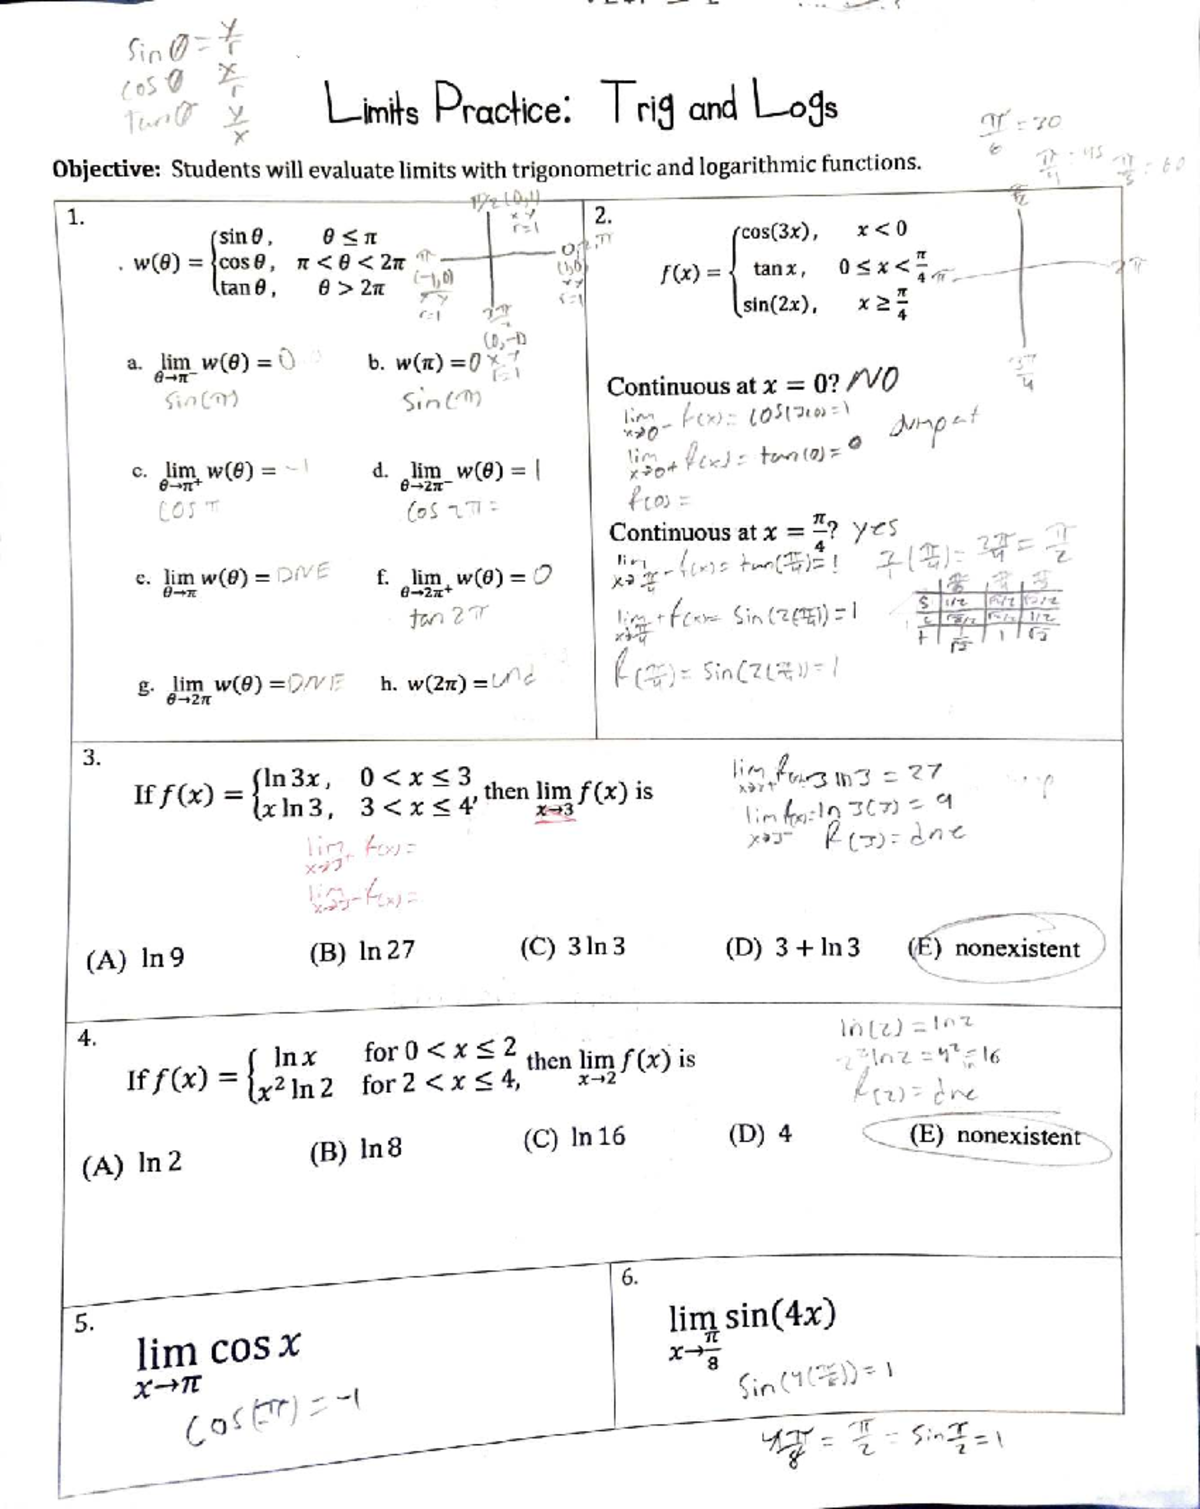 sin θ = y/r
cos θ x/r
tan θ y/x
Limits Practice: Trig and Logs
π/6 = 30
π/4 = 45 π/3 = 60
Objective: Students will evaluate limits with trigonometric and logarithmic functions.
1.
w(θ) = { sin θ, θ ≤ π
cos θ, π < θ < 2π
tan θ, θ > 2π
π/2 (0,1)
x y
r=1
π
(-1,0)
x y
r=1
0, 2π
(1,0)
x y
r=1
3π/2
(0,-1)
x y
r=1
a. lim θ→π⁻ w(θ) = 0
sin(π)
b. w(π) = 0
sin(π)
c. lim θ→π⁺ w(θ) = -1
cos π
d. lim θ→2π⁻ w(θ) = 1
cos 2π =
e. lim θ→π w(θ) = DNE
f. lim θ→2π⁺ w(θ) = 0
tan 2π
g. lim θ→2π w(θ) = DNE
h. w(2π) = und
2.
f(x) = { cos(3x), x < 0
tan x, 0 ≤ x < π/4
sin(2x), x ≥ π/4
π
2π
Continuous at x = 0? NO
lim x→0⁻ f(x) = cos(3(0)) = 1
Jump at
lim x→0⁺ f(x) = tan(0) = 0
f(0) =
Continuous at x = π/4? yes
lim x→π/4⁻ f(x) = tan(π/4) = 1
lim x→π/4⁺ f(x) = sin(2(π/4)) = 1
f(π/4) = sin(2(π/4)) = 1
3.
If f(x) = { ln 3x, 0 < x ≤ 3
x ln 3, 3 < x ≤ 4, then lim x→3 f(x) is
lim x→3⁺ f(x) =
lim x→3⁻ f(x) =
lim x→3⁺ f(x) = 3 ln 3 = 27
lim x→3⁻ f(x) = ln 3(3) = 9
f(3) = dne
(A) ln 9
(B) ln 27
(C) 3 ln 3
(D) 3 + ln 3
(E) nonexistent
4.
If f(x) = { ln x for 0 < x ≤ 2
x² ln 2 for 2 < x ≤ 4, then lim x→2 f(x) is
ln(2) = ln 2
2² ln 2 = 4² = 16
f(2) = dne
(A) ln 2
(B) ln 8
(C) ln 16
(D) 4
(E) nonexistent
5.
lim x→π cos x
cos(π) = -1
6.
lim x→π/8 sin(4x)
sin(4(π/8)) = 1
4π/8 = π/2 = sin π/2 = 1